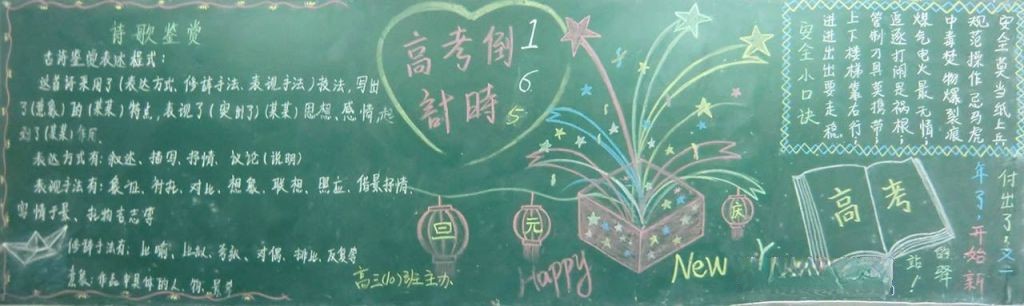 诗歌鉴赏
古诗鉴赏表述程式：
这首诗采用了(表达方式、修辞手法、表现手法)技法，写出
了(意象)的(某某)特点，表现了(突出了)(某某)思想、感情，起
到了(某某)作用。
表达方式有：叙述、描写、抒情、议论(说明)
表现手法有：衬托、对比、想象、联想、照应、借景抒情、
情于景、托物言志等
修辞手法有：比喻、比拟、夸张、对偶、排比、反复等
意象：作品中具体的人、物、景
高三(10)班主办
高考倒
計時
165
旦元庆
Happy
New
Y
高考
安全小口诀
安全莫当纸上兵
规范操作忌马虎
中毒焚物爆裂痕
煤气电火最无情，
追逐打闹是祸根，
管制刀具莫携带，
上下楼梯靠右行，
进进出出要走稳
付出了，又一
年了，开始新
的